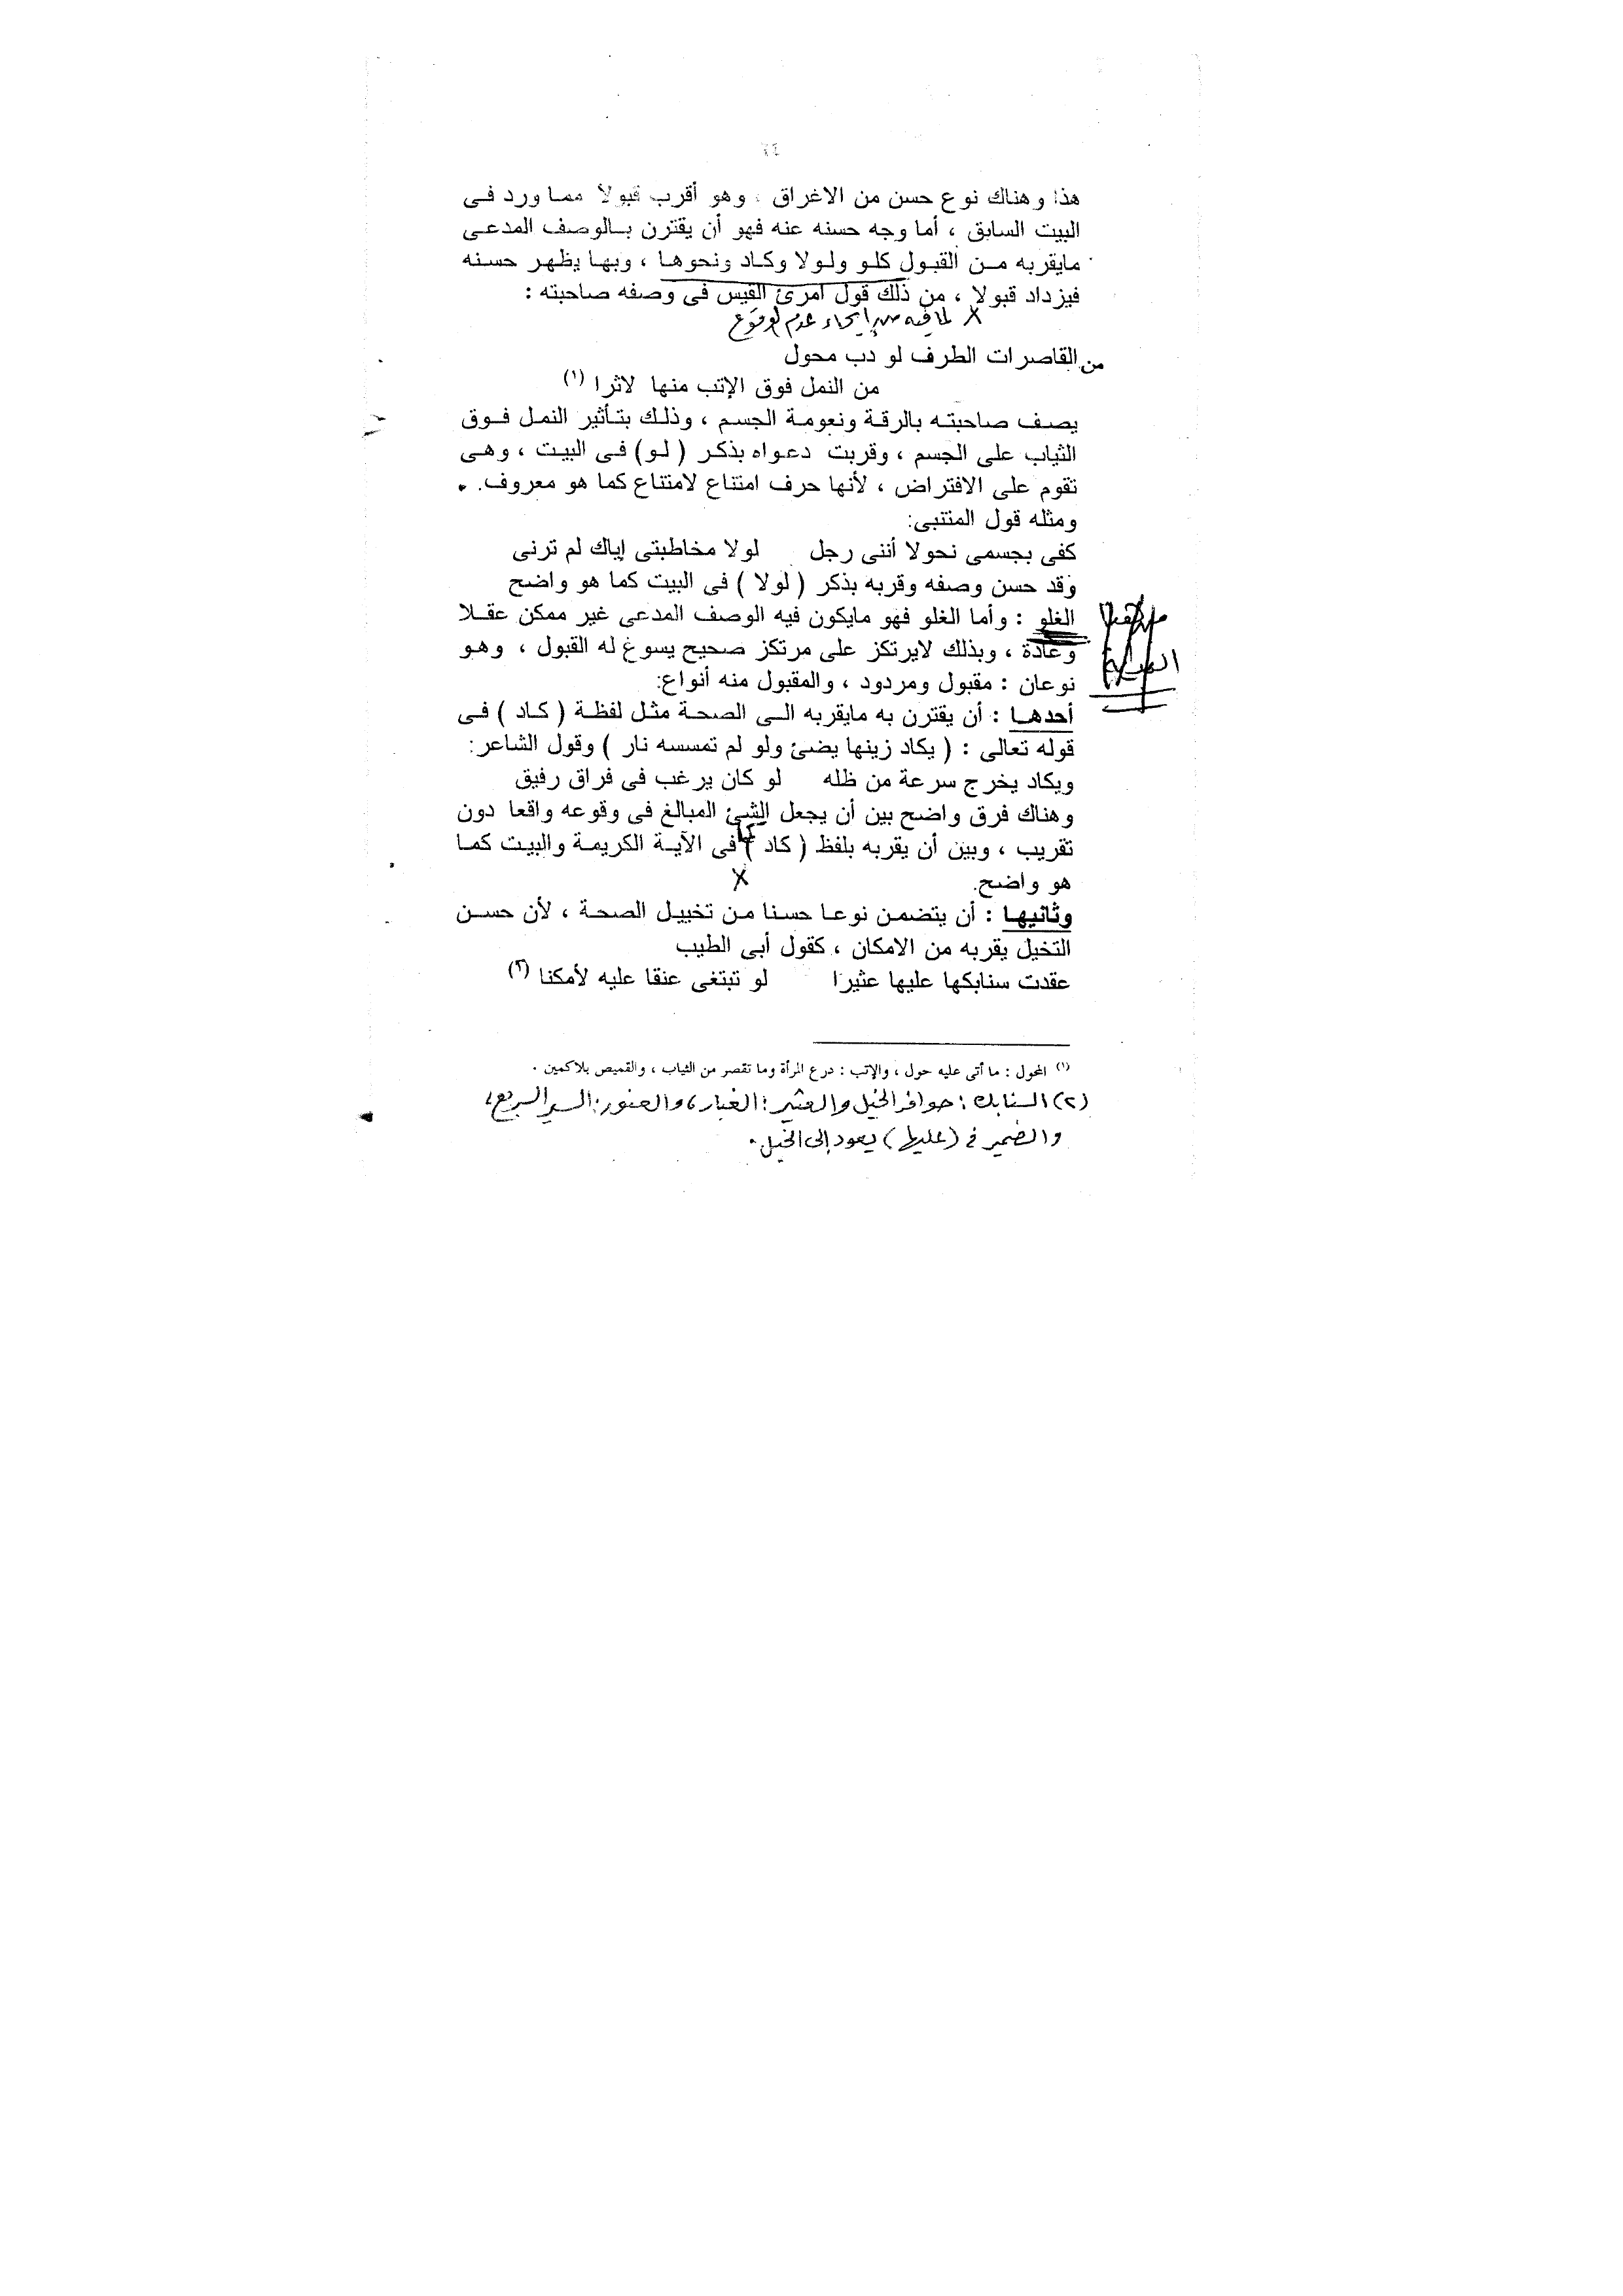 هذا وهناك نوع حسن من الاغراق ، وهو أقرب قبولا مما ورد فى
البيت السابق ، أما وجه حسنه عنه فهو أن يقترن بالوصف المدعى
مايقربه من القبول كلو ولولا وكاد ونحوها ، وبها يظهر حسنه
فيزداد قبولا ، من ذلك قول امرئ القيس فى وصفه صاحبته :
x لما فيه من إيحاء عدم الوقوع
من القاصرات الطرف لو دب محول
من النمل فوق الإتب منها لاثرا (١)
يصف صاحبته بالرقة ونعومة الجسم ، وذلك بتأثير النمل فوق
الثياب على الجسم ، وقربت دعواه بذكر ( لو ) فى البيت ، وهى
تقوم على الافتراض ، لأنها حرف امتناع لامتناع كما هو معروف .
ومثله قول المتنبى:
كفى بجسمى نحولا أننى رجل لولا مخاطبتى إياك لم ترنى
وقد حسن وصفه وقربه بذكر ( لولا ) فى البيت كما هو واضح
الغلو : وأما الغلو فهو مايكون فيه الوصف المدعى غير ممكن عقلا
وعادة ، وبذلك لايرتكز على مرتكز صحيح يسوغ له القبول ، وهو
نوعان : مقبول ومردود ، والمقبول منه أنواع:
أحدها : أن يقترن به مايقربه الى الصحة مثل لفظة ( كاد ) فى
قوله تعالى : ( يكاد زيتها يضئ ولو لم تمسسه نار ) وقول الشاعر:
ويكاد يخرج سرعة من ظله لو كان يرغب فى فراق رفيق
وهناك فرق واضح بين أن يجعل الشئ المبالغ فى وقوعه واقعا دون
تقريب ، وبين أن يقربه بلفظ ( كاد ) كما فى الآية الكريمة والبيت كما
هو واضح. x
وثانيها : أن يتضمن نوعا حسنا من تخييل الصحة ، لأن حسن
التخيل يقربه من الامكان ، كقول أبى الطيب
عقدت سنابكها عليها عثيرا لو تبتغى عنقا عليه لأمكنا (٢)
(١) المحول : ما أتى عليه حول ، والإتب : درع المرأة وما تقصر من الثياب ، والقميص بلاكمين .
(٢) السنابك : حوافر الخيل والعثير : الغبار ، : السير السريع ،
والضمير فى (عليها) يعود إلى الخيل .